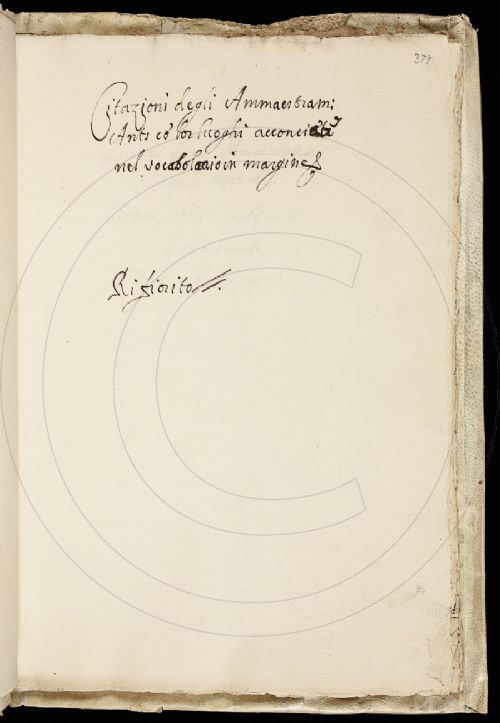 379
Citazioni degli Ammaestram:
Ant: cō lor luoghi acconciati
nel vocabolario in margine
Rifiorito